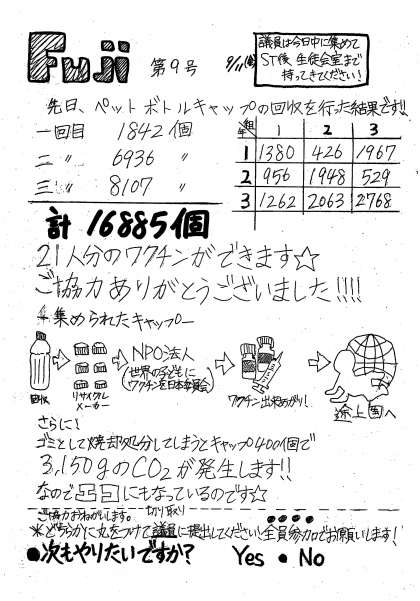 Fuji 第9号 9/11(金)
議員は今日中に集めて
ST後、生徒会室まで
持ってきてください!
先日、ペットボトルキャップの回収を行った結果です!!
一回目 1842個
二 〃 6936 〃
三 〃 8107 〃
組 年 1 2 3
1 1380 426 1967
2 956 1948 529
3 1262 2063 2768
計 16885個
21人分のワクチンができます☆
ご協力ありがとうございました!!!!
集められたキャップ
回収
リサイクル
メーカー
NPO法人
(世界の子どもに
ワクチンを日本委員会)
ワクチン出来あがり!
途上国へ
さらに!
ゴミとして焼却処分してしまうとキャップ400個で
3,150gのCO2が発生します!!
なのでエコにもなっているのです☆
切り取り
ご協力おねがいします。
※どちらかに丸をつけて議員に提出してください!全員参加でお願いします!
●次もやりたいですか? Yes ● No